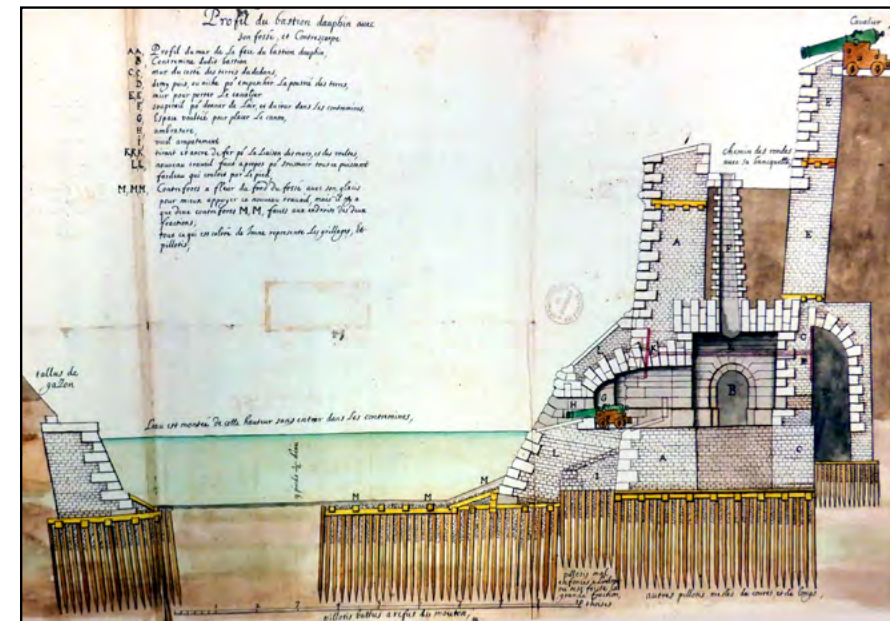 Profil du bastion dauphin avec
son fossé, et Contrescarpe
A A, Profil du mur de La face du bastion dauphin,
B Contremine dudit bastion
C C, mur du costé des terres dudedans,
D, demy puis, ou niche po.r empescher La poussée des terres,
E E, mur pour porter Le cavalier
F, soupirail po.r donner de Lair, et du iour dans Les contremines,
G, Espace voultée pour placer Le canon,
H ambrasure,
I vieil ampatement
K K K tirant et ancre de fer po.r La Liaison des murs, et des voultes,
L L, nouveau travail fait apropos po.r soustenir tout ce puissant
fardeau qui couloit par Le pied,
M, M M, Contreforts a fleur du fond du fossé avec son glacis
pour mieux appuyer ce nouveau travail, mais il ny a
que deux contreforts M, M, faits aux endroits des deux
fractions,
tout ce qui est coloré de Jaune represente Les grillages, et
pilotis,
Cavalier
chemin des rondes
avec sa banquette
E
A
F
E
tallus de
gazon
L
K
C
H
G
B
Leau est montée de cette hauteur sans entrer dans Les contremines,
L
I
A
C
M
M
M
autres pilotis meslés de courts et de longs,
pilotis battus a refus du mouton,